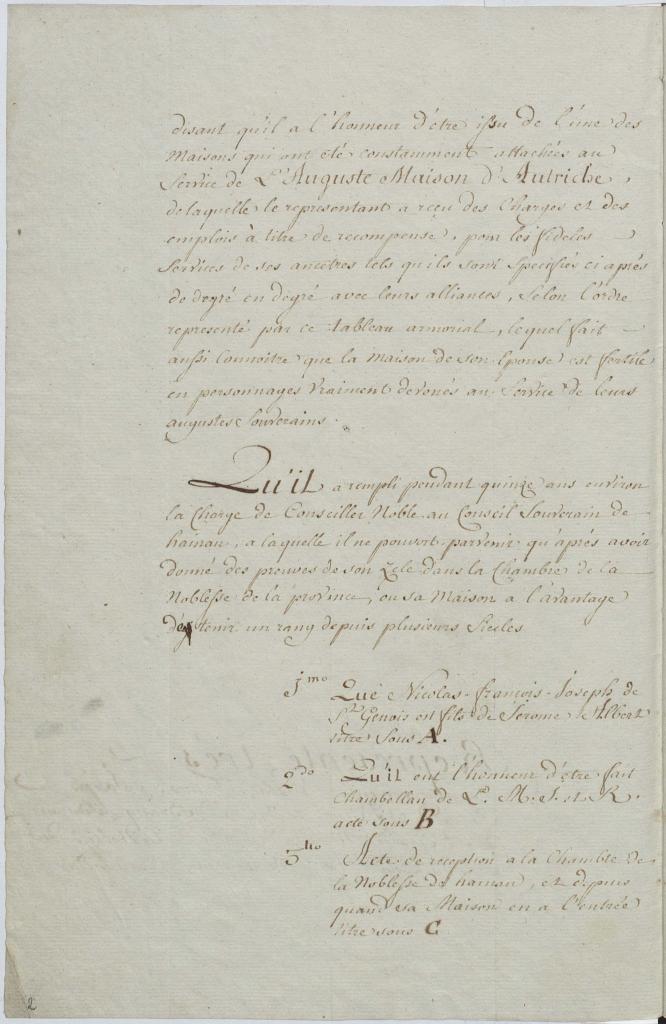 disant qu'il a l'honneur d'être issu de l'une des
Maisons qui ont été constamment attachées au
Service de L'Auguste Maison d'Autriche,
de laquelle le représentant a reçu des Charges et des
emplois à titre de recompense, pour les fideles
Services de ses ancêtres tels qu'ils sont Specifiés ci après
de degré en dégré avec leurs alliances, Selon l'ordre
representé par ce tableau armorial, lequel fait
aussi connoitre que la Maison de son Epouse est fertile
en personnages Vraiment devoués au Service de leurs
augustes Souverains.
Qu'il a rempli pendant quinze ans environ
la Charge de Conseiller Noble au Conseil Souverain de
hainau, a laquelle il ne pouvoit parvenir qu'après avoir
donné des preuves de son Zele dans la Chambre de la
Noblesse de la province, ou sa Maison a l'avantage
d'y tenir un rang depuis plusieurs Siecles
1mo Que Nicolas-françois-Joseph de
St Genois est fils de Jerome Albert
titre Sous A.
2do Qu'il eut l'honneur d'etre fait
Chambellan de L. M. I. et R.
acte sous B
3tio Acte de reception a la Chambre de
la Noblesse du hainau, et depuis
quand sa Maison en a l'entrée
titre sous C
2